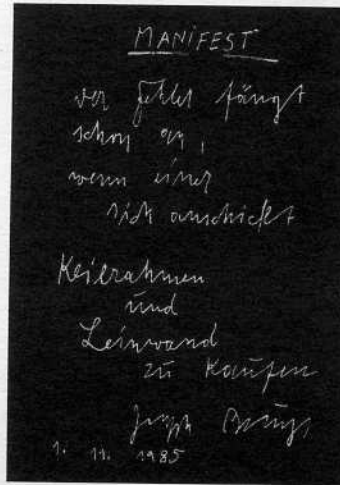 MANIFEST
der Fehler fängt
schon an,
wenn einer
sich anschickt
Keilrahmen
und
Leinwand
zu kaufen
Joseph Beuys
1. 11. 1985